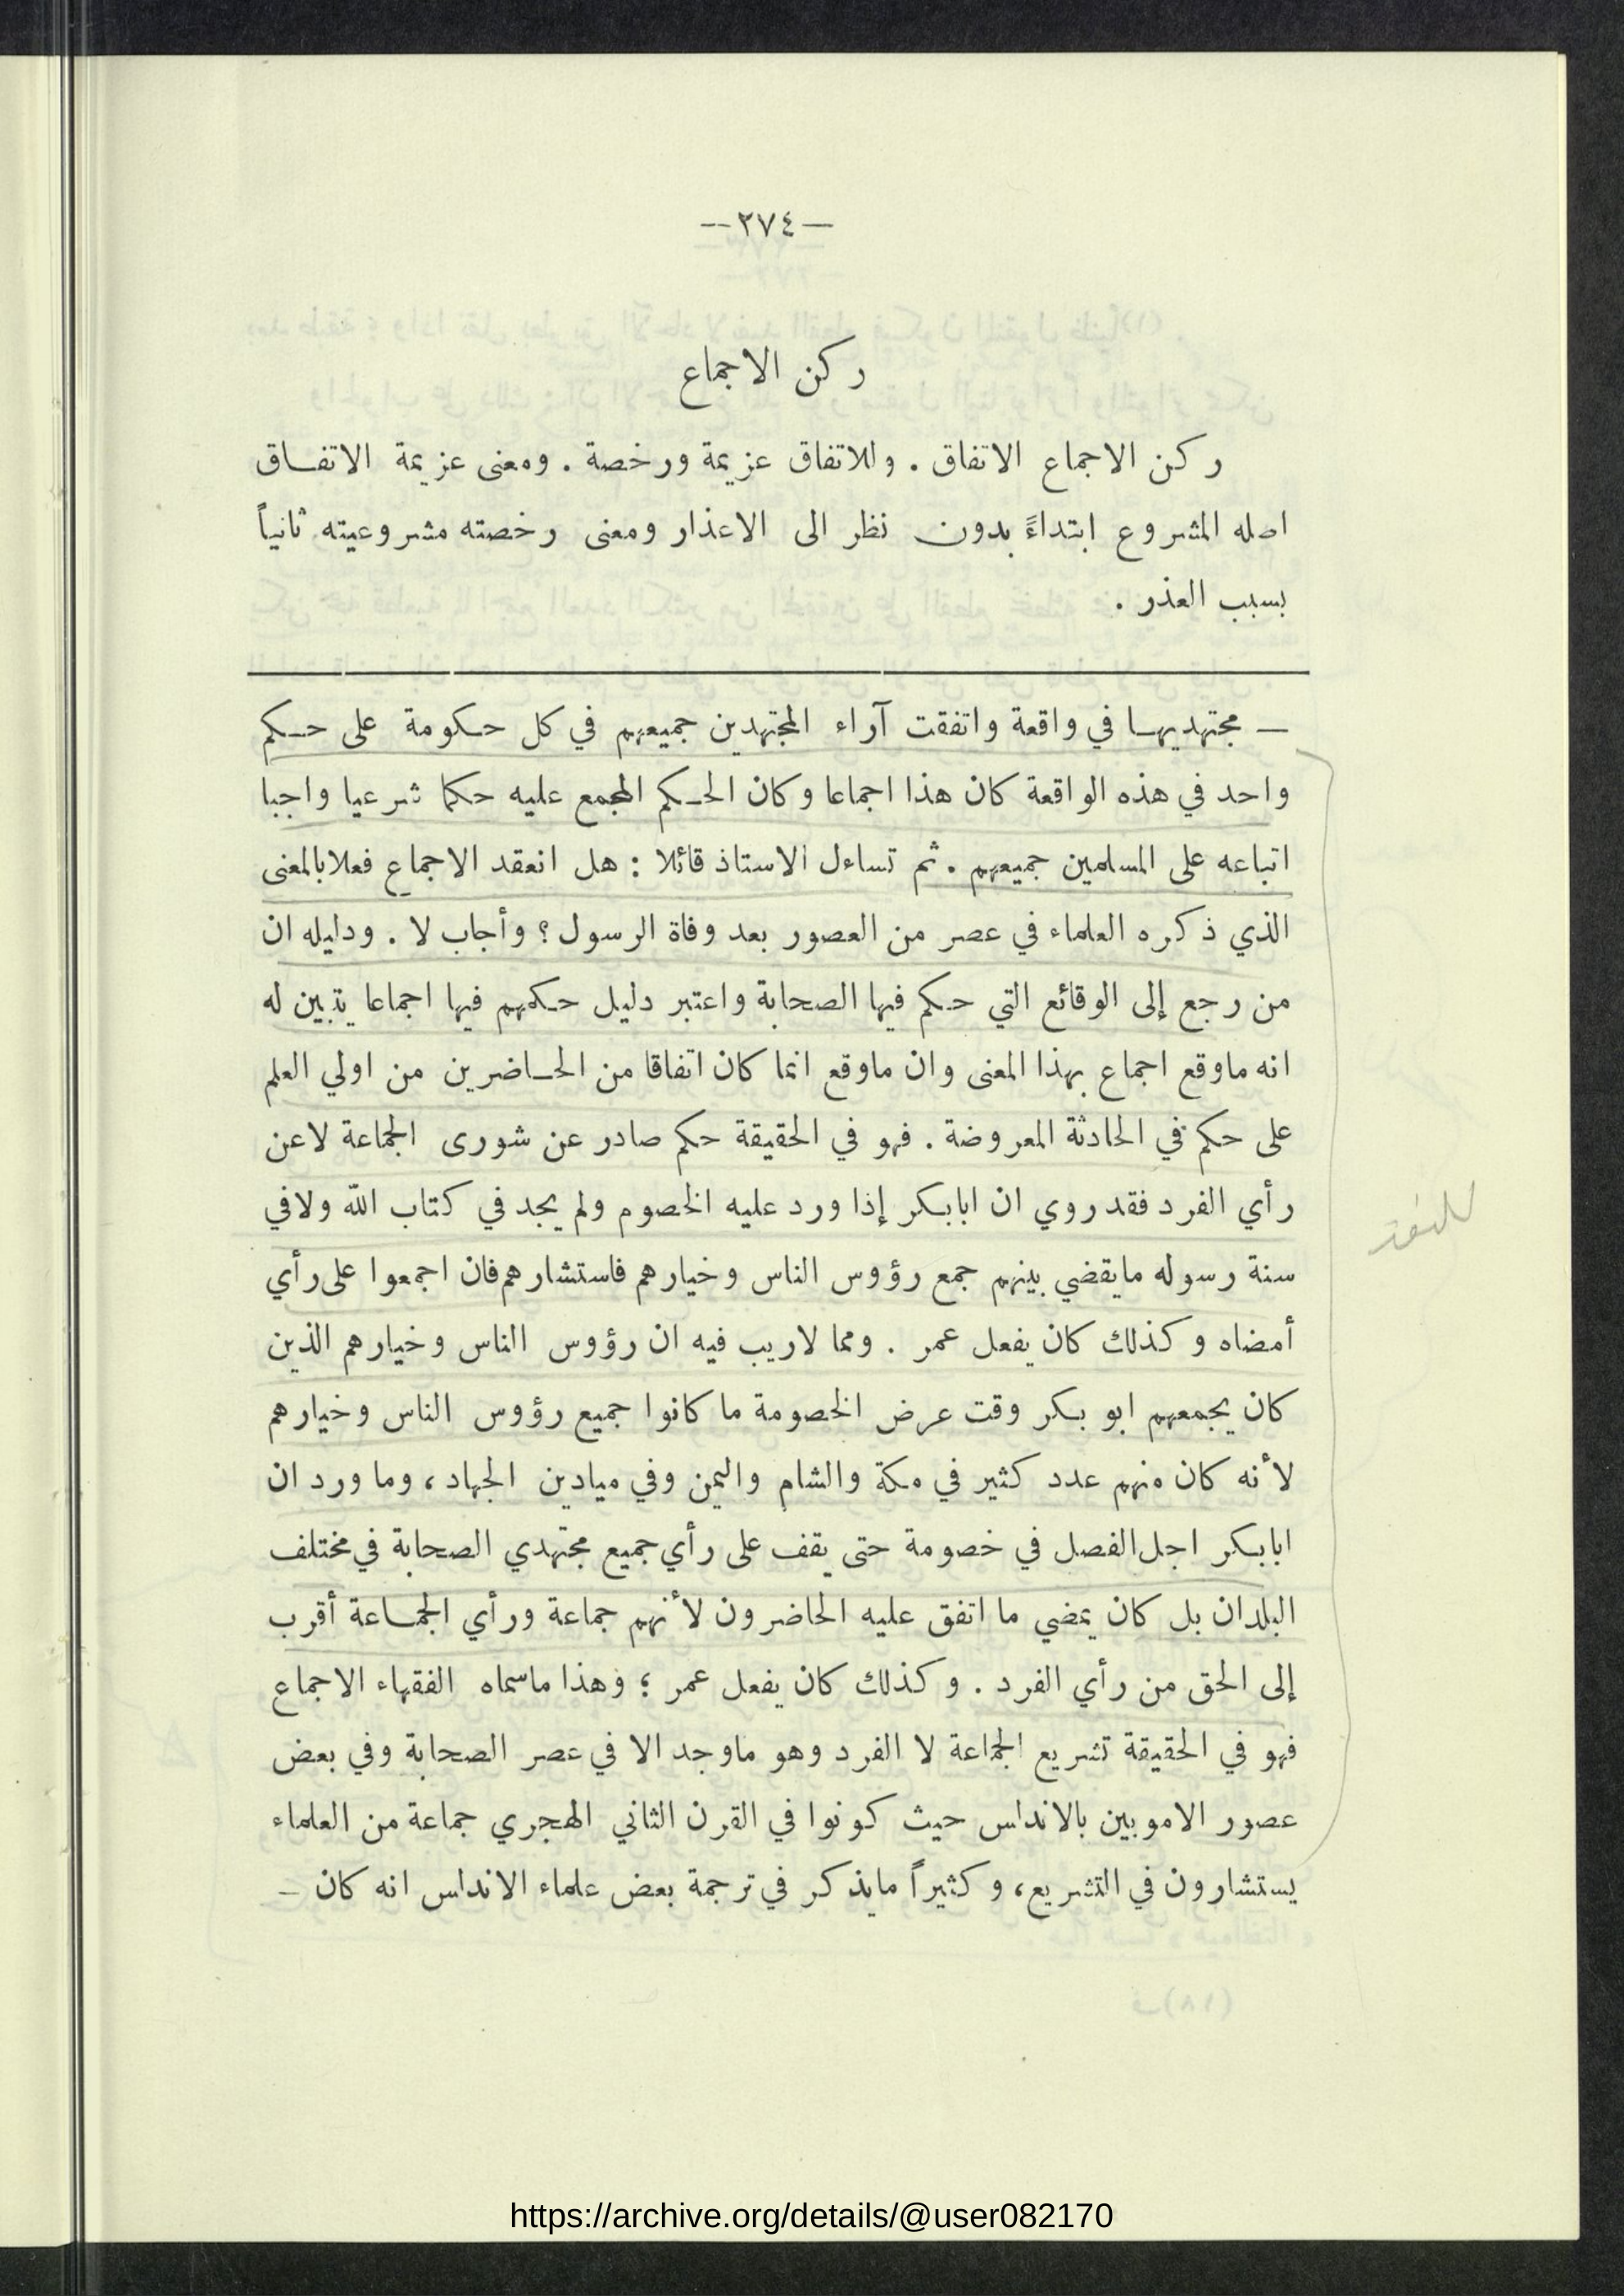 —٢٧٤—
ركن الاجماع
ركن الاجماع الاتفاق . وللاتفاق عزيمة ورخصة . ومعنى عزيمة الاتفاق
اصله المشروع ابتداءً بدون نظر الى الاعذار ومعنى رخصته مشروعيته ثانياً
بسبب العذر .
— مجتهديها في واقعة واتفقت آراء المجتهدين جميعهم في كل حكومة على حكم
واحد في هذه الواقعة كان هذا اجماعا وكان الحكم المجمع عليه حكما شرعيا واجبا
اتباعه على المسلمين جميعهم . ثم تساءل الاستاذ قائلا : هل انعقد الاجماع فعلا بالمعنى
الذي ذكره العلماء في عصر من العصور بعد وفاة الرسول ؟ وأجاب لا . ودليله ان
من رجع إلى الوقائع التي حكم فيها الصحابة واعتبر دليل حكمهم فيها اجماعا يتبين له
انه ماوقع اجماع بهذا المعنى وان ماوقع انما كان اتفاقا من الحاضرين من اولي العلم
على حكم في الحادثة المعروضة . فهو في الحقيقة حكم صادر عن شورى الجماعة لاعن
رأي الفرد فقد روي ان ابابكر إذا ورد عليه الخصوم ولم يجد في كتاب الله ولافي
سنة رسوله مايقضي بينهم جمع رؤوس الناس وخيارهم فاستشارهم فان اجمعوا على رأي
أمضاه وكذلك كان يفعل عمر . ومما لاريب فيه ان رؤوس الناس وخيارهم الذين
كان يجمعهم ابو بكر وقت عرض الخصومة ما كانوا جميع رؤوس الناس وخيارهم
لأنه كان منهم عدد كثير في مكة والشام واليمن وفي ميادين الجهاد ، وما ورد ان
ابابكر اجل الفصل في خصومة حتى يقف على رأي جميع مجتهدي الصحابة في مختلف
البلدان بل كان يمضي ما اتفق عليه الحاضرون لأنهم جماعة ورأي الجماعة أقرب
إلى الحق من رأي الفرد . وكذلك كان يفعل عمر ؛ وهذا ماسماه الفقهاء الاجماع
فهو في الحقيقة تشريع الجماعة لا الفرد وهو ماوجد الا في عصر الصحابة وفي بعض
عصور الامويين بالاندلس حيث كونوا في القرن الثاني الهجري جماعة من العلماء
يستشارون في التشريع، وكثيراً مايذكر في ترجمة بعض علماء الاندلس انه كان —
https://archive.org/details/@user082170